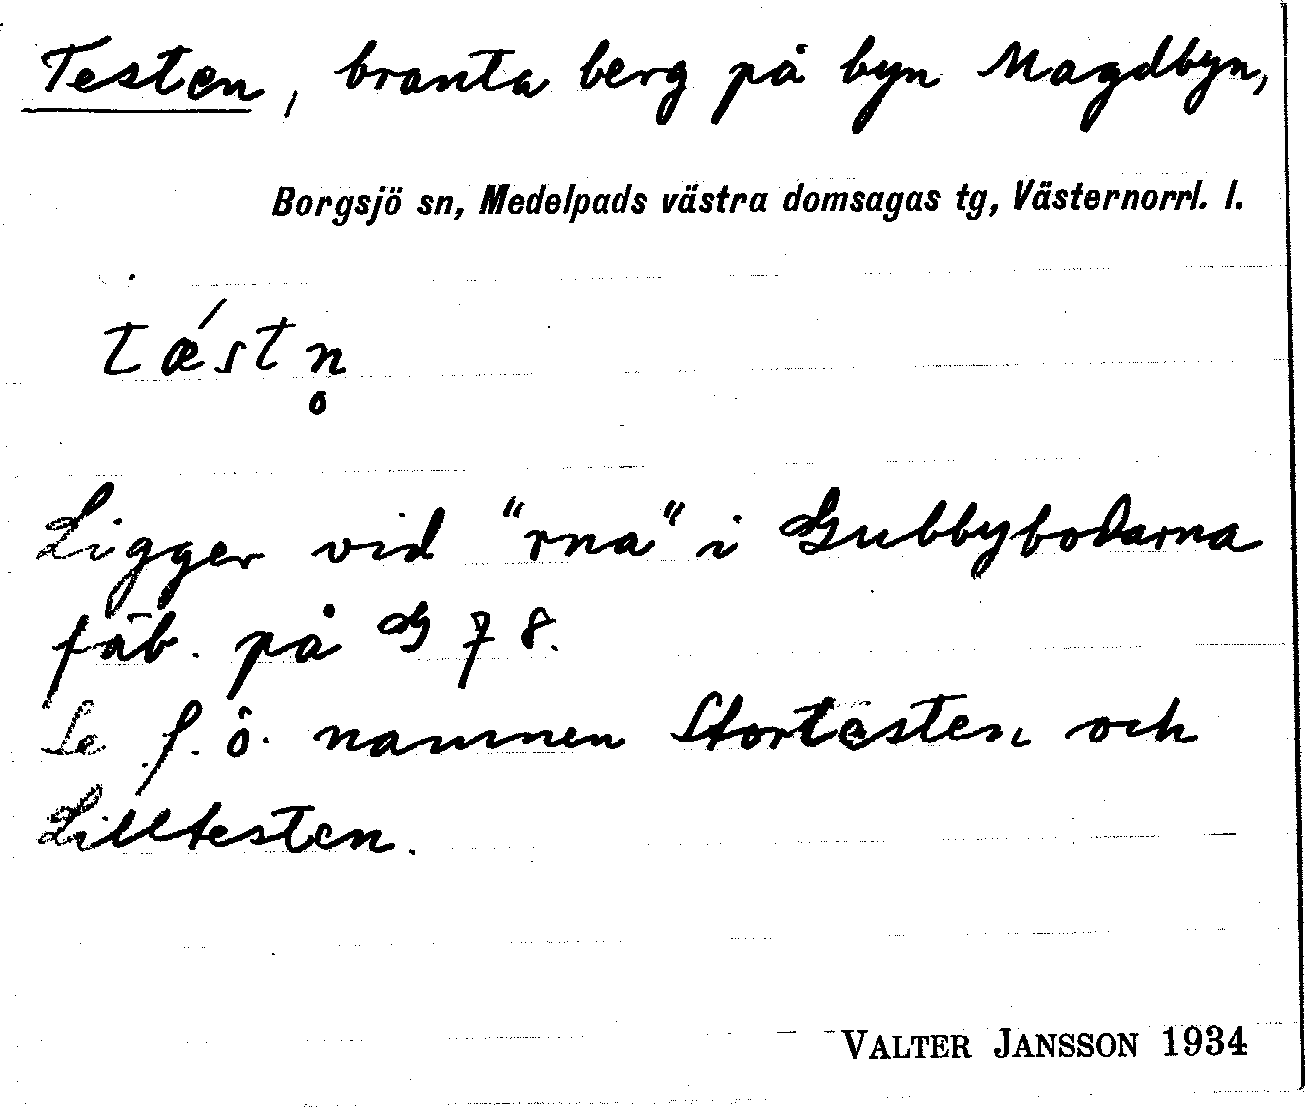 Testen, branta berg på byn Magdbyn,
Borgsjö sn, Medelpads västra domsagas tg, Västernorrl. l.
tǽstn̥
Ligger vid "rna" i Gubbybodarna
fäb. på G 7 8.
Se f. ö. namnen Stortesten och
Lilltesten.
VALTER JANSSON 1934